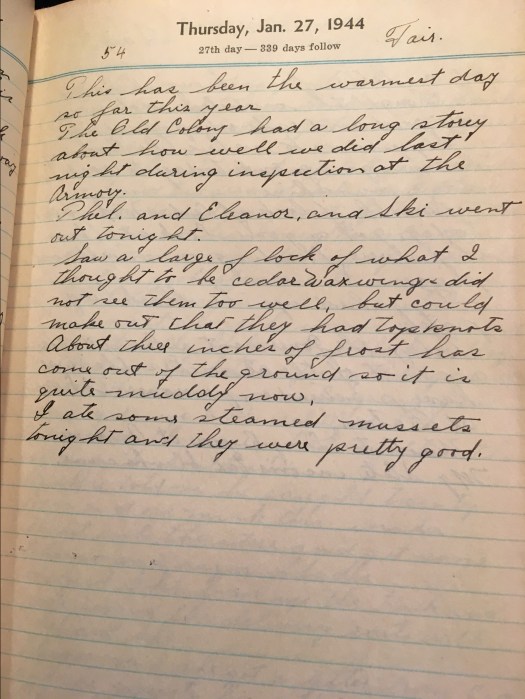 Thursday, Jan. 27, 1944
54
27th day — 339 days follow
Fair.
This has been the warmest day
so far this year
The Old Colony had a long storey
about how well we did last
night during inspection at the
Armory.
Phel. and Eleanor, and Ski went
out tonight.
Saw a large flock of what I
thought to be cedar waxwings did
not see them too well, but could
make out that they had topknots
About three inches of frost has
come out of the ground so it is
quite muddy now.
I ate some steamed mussets
tonight and they were pretty good.